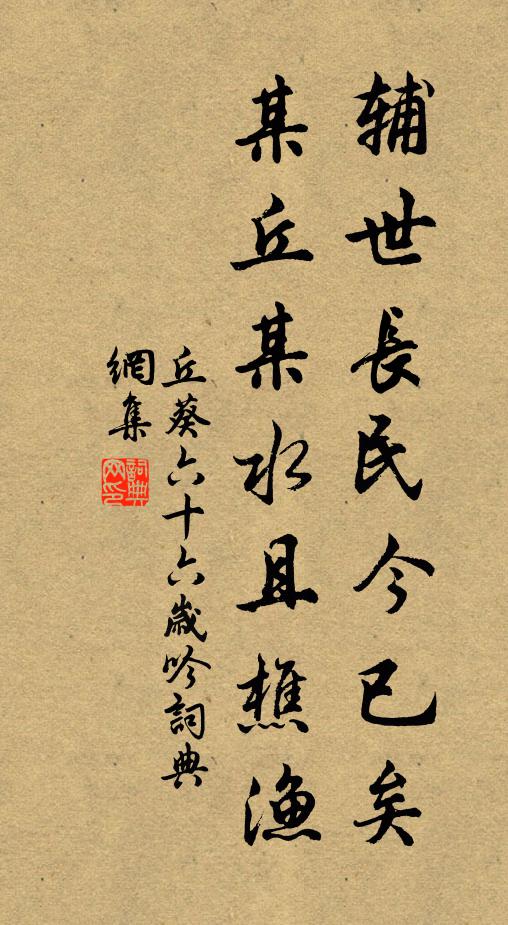 辅世長民今已矣
某丘某水且樵漁
丘葵六十六歲吟詞典
網集
詞典
网印